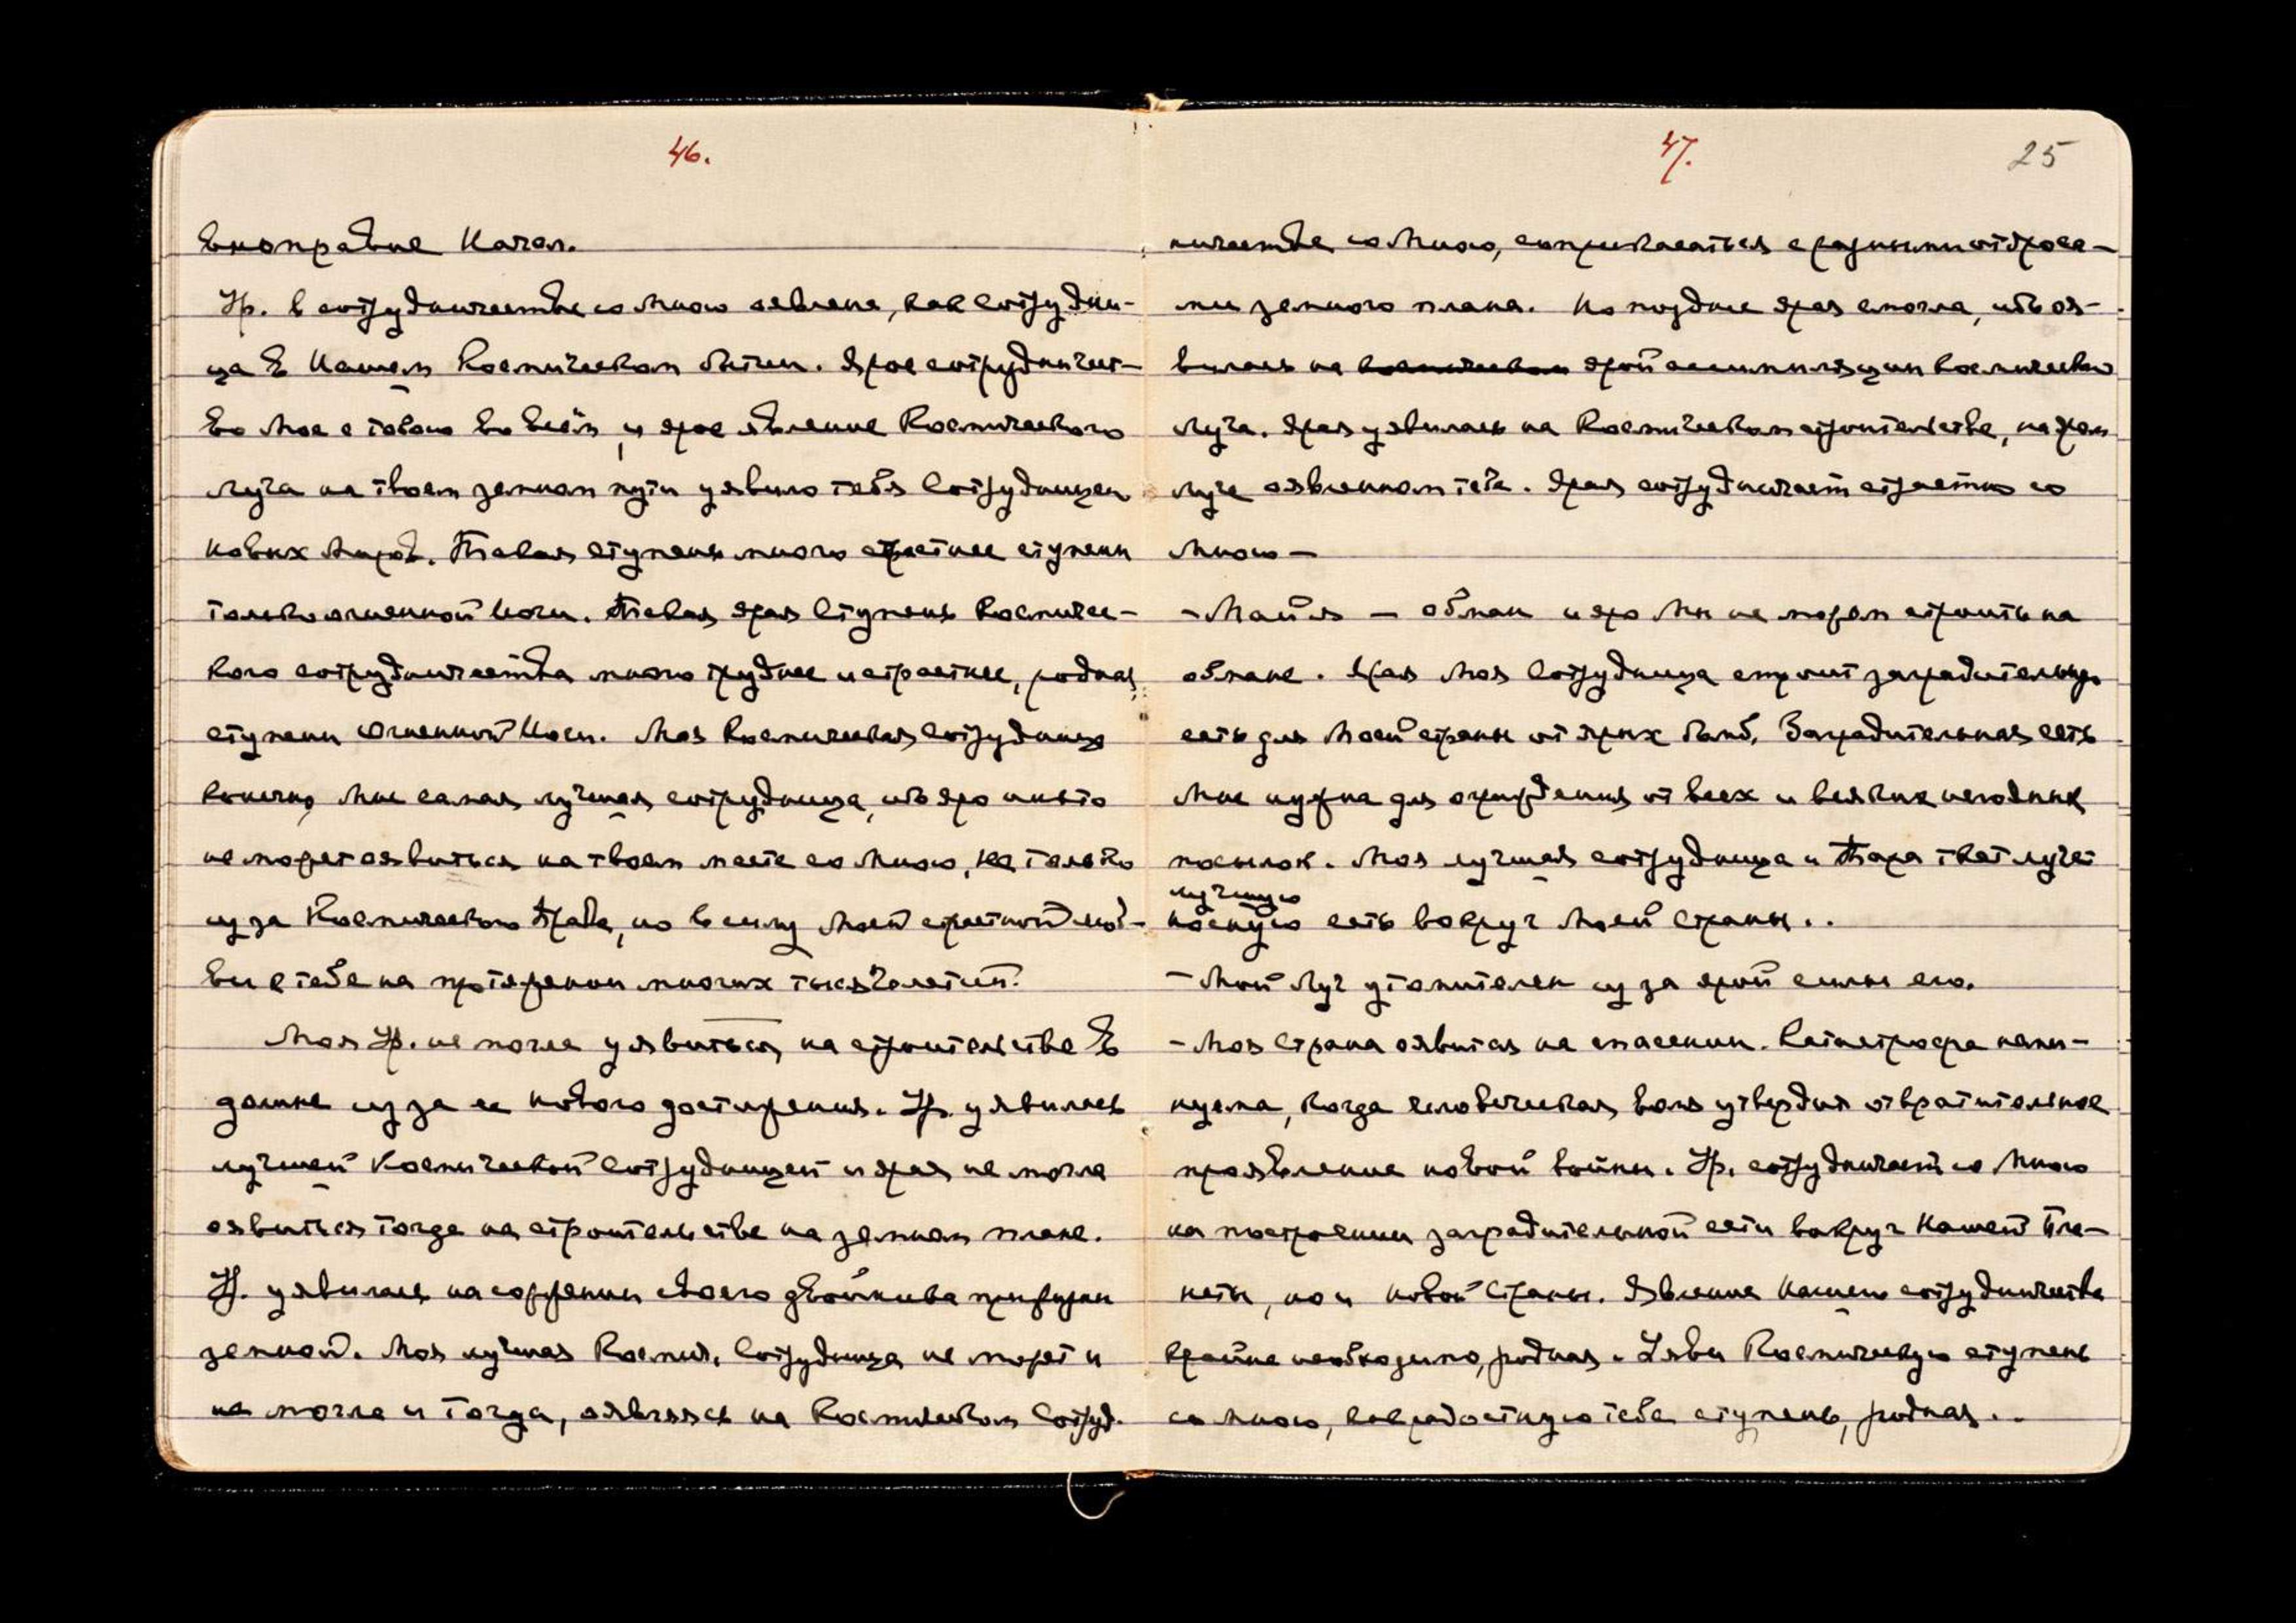 46.
вноправие Начал.
Ур. в сотрудничестве со Мною явлена, как Сотрудни-
ца в Нашем Космическом бытии. Ярое сотрудничест-
во Мое с тобою во всём и ярое явление Космического
луча на твоем земном пути уявило тебя Сотрудницей
Новых Миров. Такая ступень много страстнее ступени
только огненной Йоги. Такая ярая Ступень Космичес-
кого сотрудничества много труднее и страстнее, родная,
ступени Огненной Йоги. Моя Космическая Сотрудница
конечно, Мне самая лучшая сотрудница, ибо яро никто
не может оявиться на твоем месте со Мною, не только
из за Космического Права, но в силу Моей страстной люб-
ви к тебе на протяжении многих тысячелетий.
Моя Ур. не могла уявиться на строительстве в
дальше из за ее нового достижения. Ур. уявилась
лучшей Космической Сотрудницей и ярая не могла
оявиться тогда на строительстве на земном плане.
Ур. уявилась на сожжении своего двойника при жизни
земной. Моя лучшая Космич. Сотрудница не может и
не могла и тогда, оявляясь на Космическом Сотруд.
47.
25
ничестве со Мною, соприкасаться с разными отброса-
ми земного плана. Но позднее ярая смогла, ибо оя-
вилась на ярой ассимиляции космического
луча. Ярая уявилась на Космическом строительстве, на яром
луче оявленном тебе. Ярая сотрудничает страстно со
Мною —
- Майя — обман и яро Мы не можем строить на
обмане. Ярая Моя Сотрудница строит заградительную
сеть для Моей страны от ярых бомб. Заградительная сеть
Мне нужна для ограждения от всех и всяких негодных
посылок. Моя лучшая сотрудница и Тара ткет луче
лучшую
носную сеть вокруг Моей Страны..
- Мой Луч утомителен из за ярой силы его.
- Моя Страна оявится на спасении. Катастрофа мани-
нуема, когда человеческая воля утвердит отвратительное
проявление новой войны. Ур. сотрудничает со Мною
на построении заградительной сети вокруг Нашей Пла-
неты, но и Новой Страны. Явление Нашего сотрудничества
крайне необходимо, родная. Уяви Космическую ступень
со Мною, как радостную тебе ступень, родная..